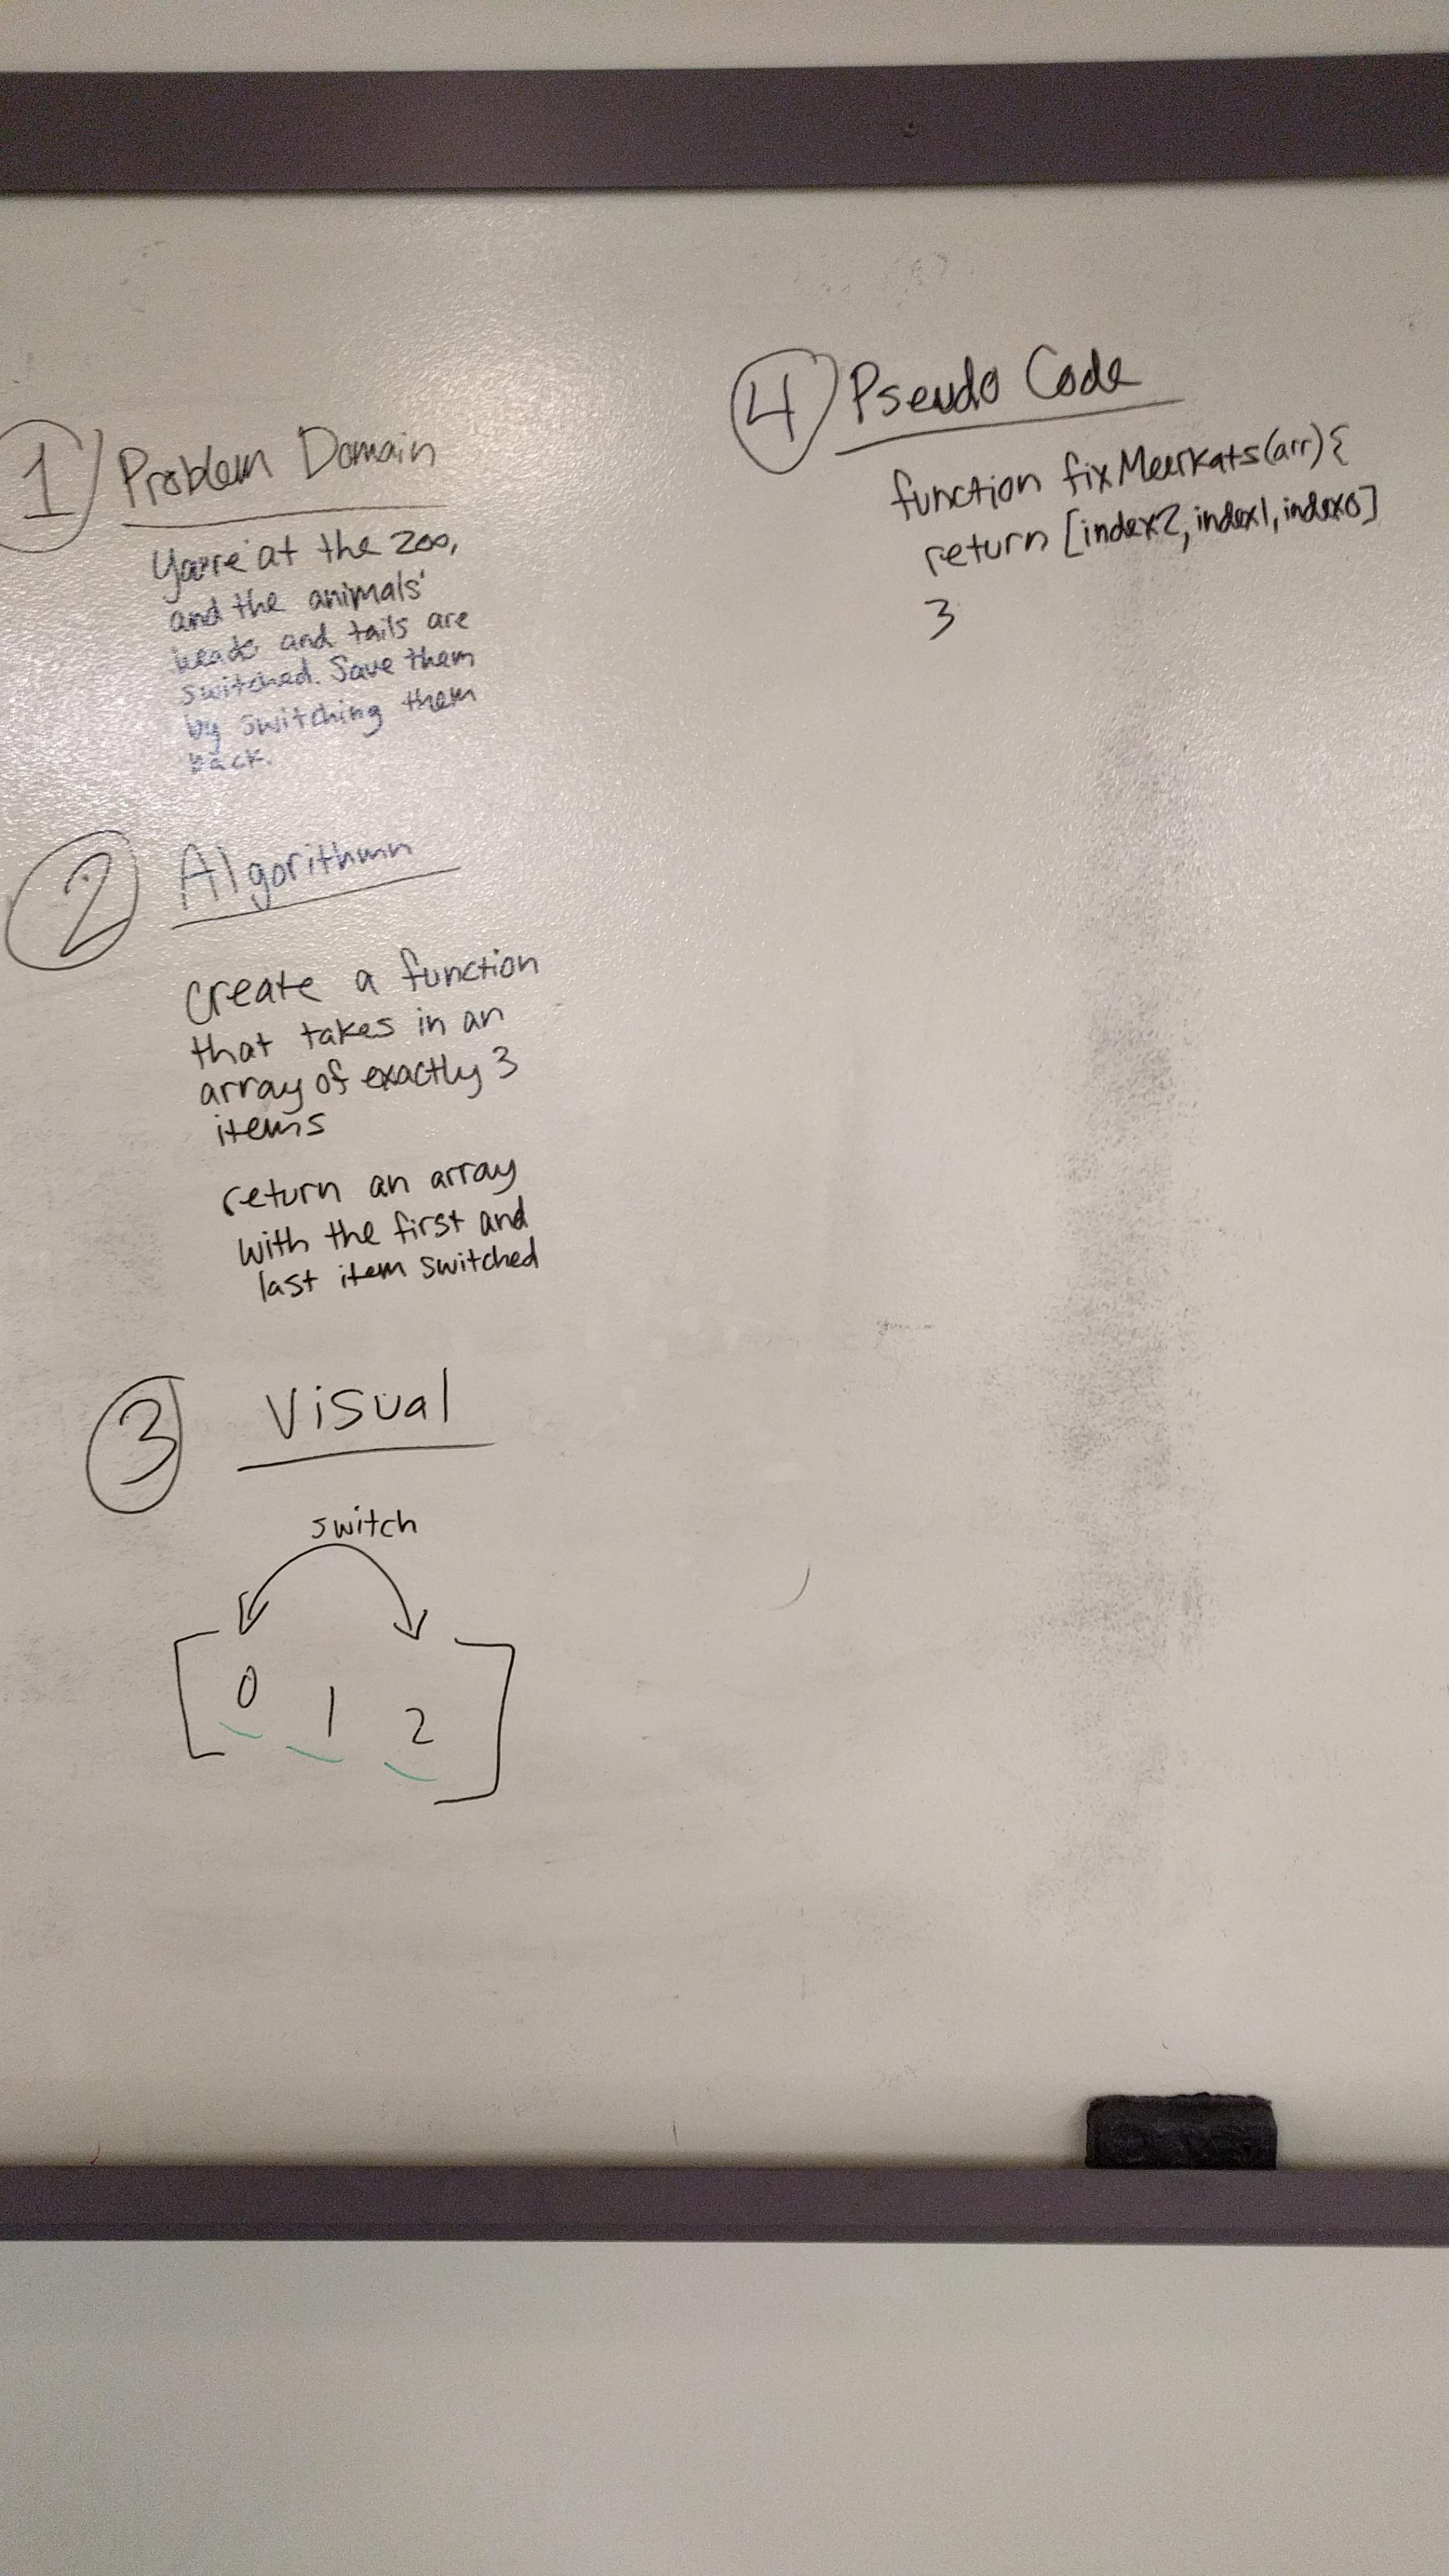 1 Problem Domain
You're at the zoo,
and the animals'
heads and tails are
switched. Save them
by switching them
back.
2 Algorithmn
Create a function
that takes in an
array of exactly 3
items
return an array
with the first and
last item switched
3 Visual
switch
[0 1 2]
4 Pseudo Code
function fixMeerkats(arr){
return [index2, index1, index0]
}